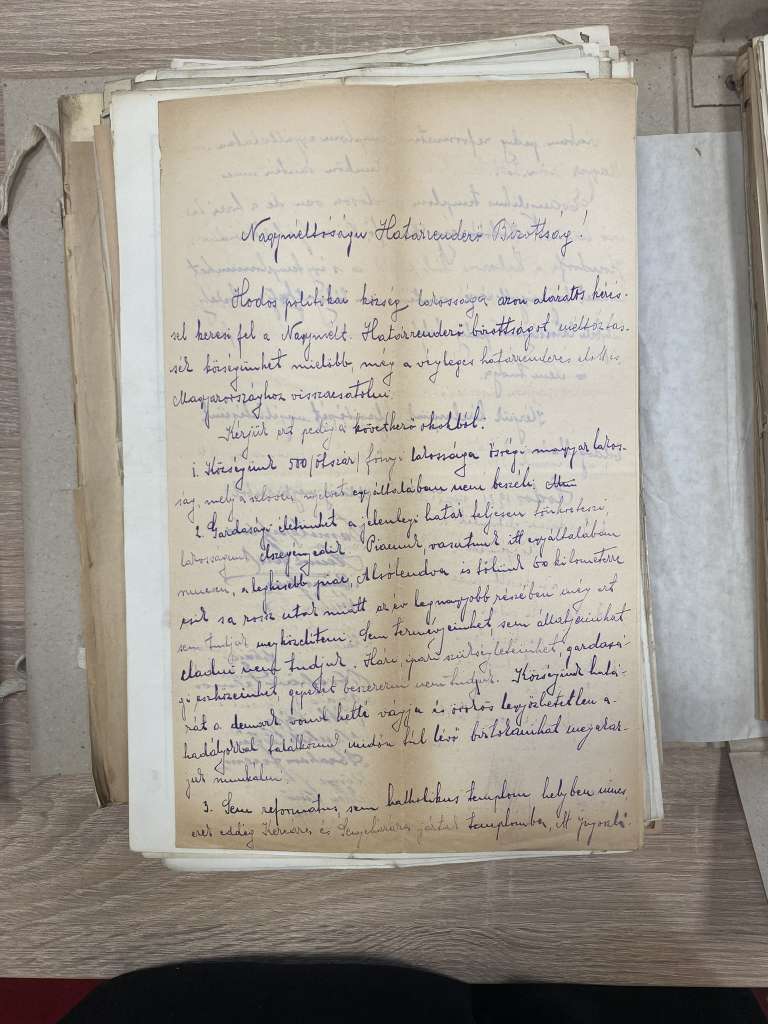 Nagyméltóságu Határrendező Bizottság!
Hodos politikai község lakossága azon alázatos kérés-
sel keresi fel a Nagymélt. Határrendező bizottságot méltóztas-
sék községünket mielőbb, még a végleges határrendezés előtt is
Magyarországhoz visszacsatolni.
Kérjük ezt pedig a következő okokból:
1. Községünk 500 /ötszáz/ főnyi lakossága ősrégi magyar lakos-
ság, mely a szlovén nyelvet egyáltalában nem beszéli.
2. Gazdasági életünket a jelenlegi határ teljesen tönkreteszi,
lakosságunk elszegényedik. Piacunk, vasutunk itt egyáltalában
nincsen, a legkisebb piac, Alsólendva is tőlünk 60 kilométerre
esik s a rossz utak miatt az év legnagyobb részében még ezt
sem tudjuk megközelíteni. Sem terményeinket, sem állatjainkat
eladni nem tudjuk. Házi, ipari szükségleteinket, gazdasá-
gi eszközeinket, gépeket beszerezni nem tudjuk. Községünk hatá-
rát a demark. vonal ketté vágja és örökös legyőzhetetlen a-
kadályokkal találkozunk midőn túl lévő birtokainkat megakar-
juk munkálni.
3. Sem református, sem katholikus templom helyben nincs
ezért eddig Kercára és Szomorócra jártak templomba,